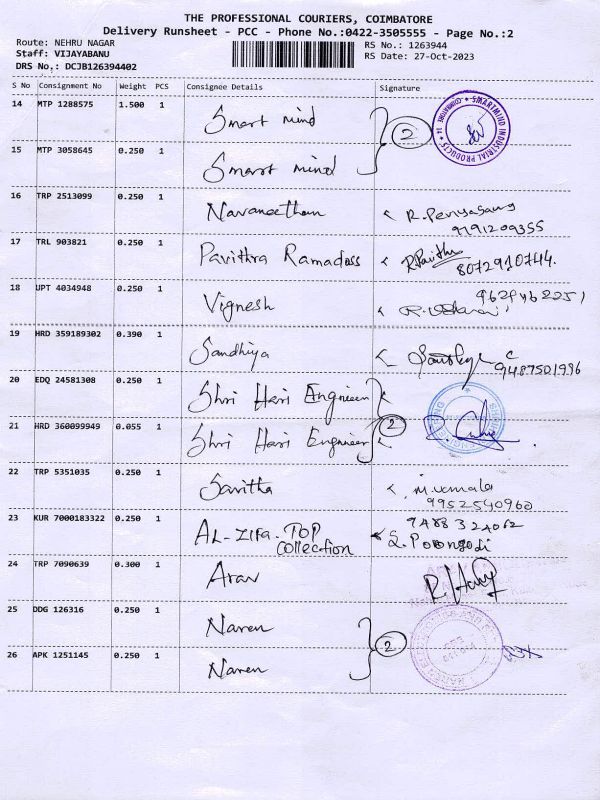 THE PROFESSIONAL COURIERS, COIMBATORE
Delivery Runsheet - PCC - Phone No.:0422-3505555 - Page No.:2
Route: NEHRU NAGAR
Staff: VIJAYABANU
DRS No.: DCJB126394402
RS No.: 1263944
RS Date: 27-Oct-2023
S No Consignment No Weight PCS Consignee Details Signature
14 MTP 1288575 1.500 1 Smart mind
2
SMARTMIND INDUSTRIAL PRODUCTS
15 MTP 3058645 0.250 1 Smart mind
16 TRP 2513099 0.250 1 Navaneethan R. Periyasamy
9191209355
17 TRL 903821 0.250 1 Pavithra Ramadoss R.Pavithra
8072910744.
18 UPT 4034948 0.250 1 Vignesh
19 HRD 359189302 0.390 1 Sandhiya
9487501996
20 EDQ 24581308 0.250 1 Shri Hari Engineer
2
21 HRD 360099949 0.055 1 Shri Hari Engineer
22 TRP 5351035 0.250 1 Savitha
9952540960
23 KUR 7000183322 0.250 1 AL-ZIFA TOP
Collection
9488324062
S. Poongodi
24 TRP 7090639 0.300 1 Arav
25 DDG 126316 0.250 1 Naren
2
26 APK 1251145 0.250 1 Naren